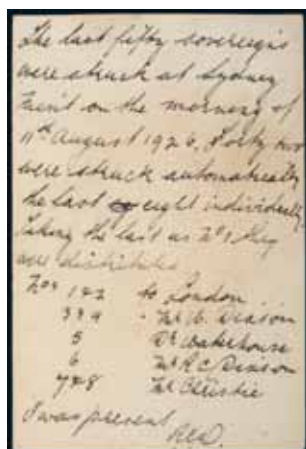 The last fifty sovereigns
were struck at Sydney
Mint on the morning of
11th August 1926. Forty two
were struck automatically
the last eight individually.
Taking the last as No 1 they
were distributed
Nos 1 & 2 to London
3 & 4 " Mr W.
5 Dr Wakehouse
6 Mr R C
7 & 8 Mr Christie
I was present